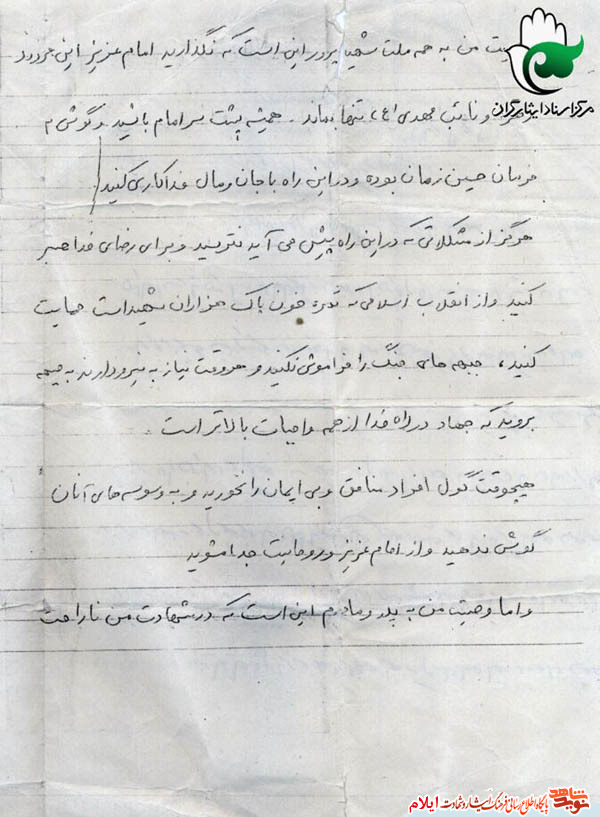 مرکز اسناد ایثارگران
یت من به همه ملت شهید پرور این است که نگذارید امام عزیز این
و نائب مهدی (عج) تنها بماند. همیشه پشت سر امام باشید و گوش به
فرمان حسین زمان بوده و در این راه با جان و مال فداکاری کنید
هرگز از مشکلاتی که در این راه پیش می آید نترسید و برای رضای خدا صبر
کنید و از انقلاب اسلامی که ثمره خون پاک هزاران شهید است حمایت
کنید، جبهه های جنگ را فراموش نکنید و هر وقت نیاز به نیرو دارند به جبهه
بروید که جهاد در راه خدا از همه واجبات بالاتر است.
هیچوقت گول افراد منافق و بی ایمان را نخورید و به وسوسه های آنان
گوش ندهید و از امام عزیز و روحانیت جدا مشوید
و اما وصیت من به پدر و مادرم این است که در شهادت من ناراحت
نوید شاهد پایگاه اطلاع رسانی فرهنگ ایثار و شهادت ایلام